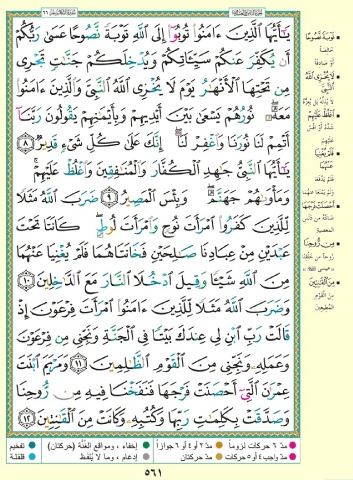 يَٰٓأَيُّهَا ٱلَّذِينَ ءَامَنُوا۟ تُوبُوٓا۟ إِلَى ٱللَّهِ تَوْبَةً نَّصُوحًا عَسَىٰ رَبُّكُمْ
أَن يُكَفِّرَ عَنكُمْ سَيِّـَٔاتِكُمْ وَيُدْخِلَكُمْ جَنَّٰتٍ تَجْرِى
مِن تَحْتِهَا ٱلْأَنْهَٰرُ يَوْمَ لَا يُخْزِى ٱللَّهُ ٱلنَّبِىَّ وَٱلَّذِينَ ءَامَنُوا۟
مَعَهُۥ ۖ نُورُهُمْ يَسْعَىٰ بَيْنَ أَيْدِيهِمْ وَبِأَيْمَٰنِهِمْ يَقُولُونَ رَبَّنَآ
أَتْمِمْ لَنَا نُورَنَا وَٱغْفِرْ لَنَآ ۖ إِنَّكَ عَلَىٰ كُلِّ شَىْءٍ قَدِيرٌ ٨
يَٰٓأَيُّهَا ٱلنَّبِىُّ جَٰهِدِ ٱلْكُفَّارَ وَٱلْمُنَٰفِقِينَ وَٱغْلُظْ عَلَيْهِمْ ۚ
وَمَأْوَىٰهُمْ جَهَنَّمُ ۖ وَبِئْسَ ٱلْمَصِيرُ ٩ ضَرَبَ ٱللَّهُ مَثَلًا
لِّلَّذِينَ كَفَرُوا۟ ٱمْرَأَتَ نُوحٍ وَٱمْرَأَتَ لُوطٍ ۖ كَانَتَا تَحْتَ
عَبْدَيْنِ مِنْ عِبَادِنَا صَٰلِحَيْنِ فَخَانَتَاهُمَا فَلَمْ يُغْنِيَا عَنْهُمَا
مِنَ ٱللَّهِ شَيْـًٔا وَقِيلَ ٱدْخُلَا ٱلنَّارَ مَعَ ٱلدَّٰخِلِينَ ١٠
وَضَرَبَ ٱللَّهُ مَثَلًا لِّلَّذِينَ ءَامَنُوا۟ ٱمْرَأَتَ فِرْعَوْنَ إِذْ
قَالَتْ رَبِّ ٱبْنِ لِى عِندَكَ بَيْتًا فِى ٱلْجَنَّةِ وَنَجِّنِى مِن فِرْعَوْنَ
وَعَمَلِهِۦ وَنَجِّنِى مِنَ ٱلْقَوْمِ ٱلظَّٰلِمِينَ ١١ وَمَرْيَمَ ٱبْنَتَ
عِمْرَٰنَ ٱلَّتِىٓ أَحْصَنَتْ فَرْجَهَا فَنَفَخْنَا فِيهِ مِن رُّوحِنَا
وَصَدَّقَتْ بِكَلِمَٰتِ رَبِّهَا وَكُتُبِهِۦ وَكَانَتْ مِنَ ٱلْقَٰنِتِينَ ١٢
تَوْبَةً نَّصُوحًا
لَا يُخْزِى ٱللَّهُ النَّبِىَّ
ٱغْلُظْ عَلَيْهِمْ
فَلَمْ يُغْنِيَا عَنْهُمَا
أَحْصَنَتْ فَرْجَهَا
مِن رُّوحِنَا
مِنَ ٱلْقَٰنِتِينَ
مدّ ٦ حركات لزوماً مدّ ٢ أو ٤ أو ٦ جوازاً إخفاء، ومواقع الغُنَّة (حركتان) تفخيم
مدّ واجب ٤ أو ٥ حركات مدّ حركتان إدغام، وما لا يُلفَظ قلقلة
٥٦١